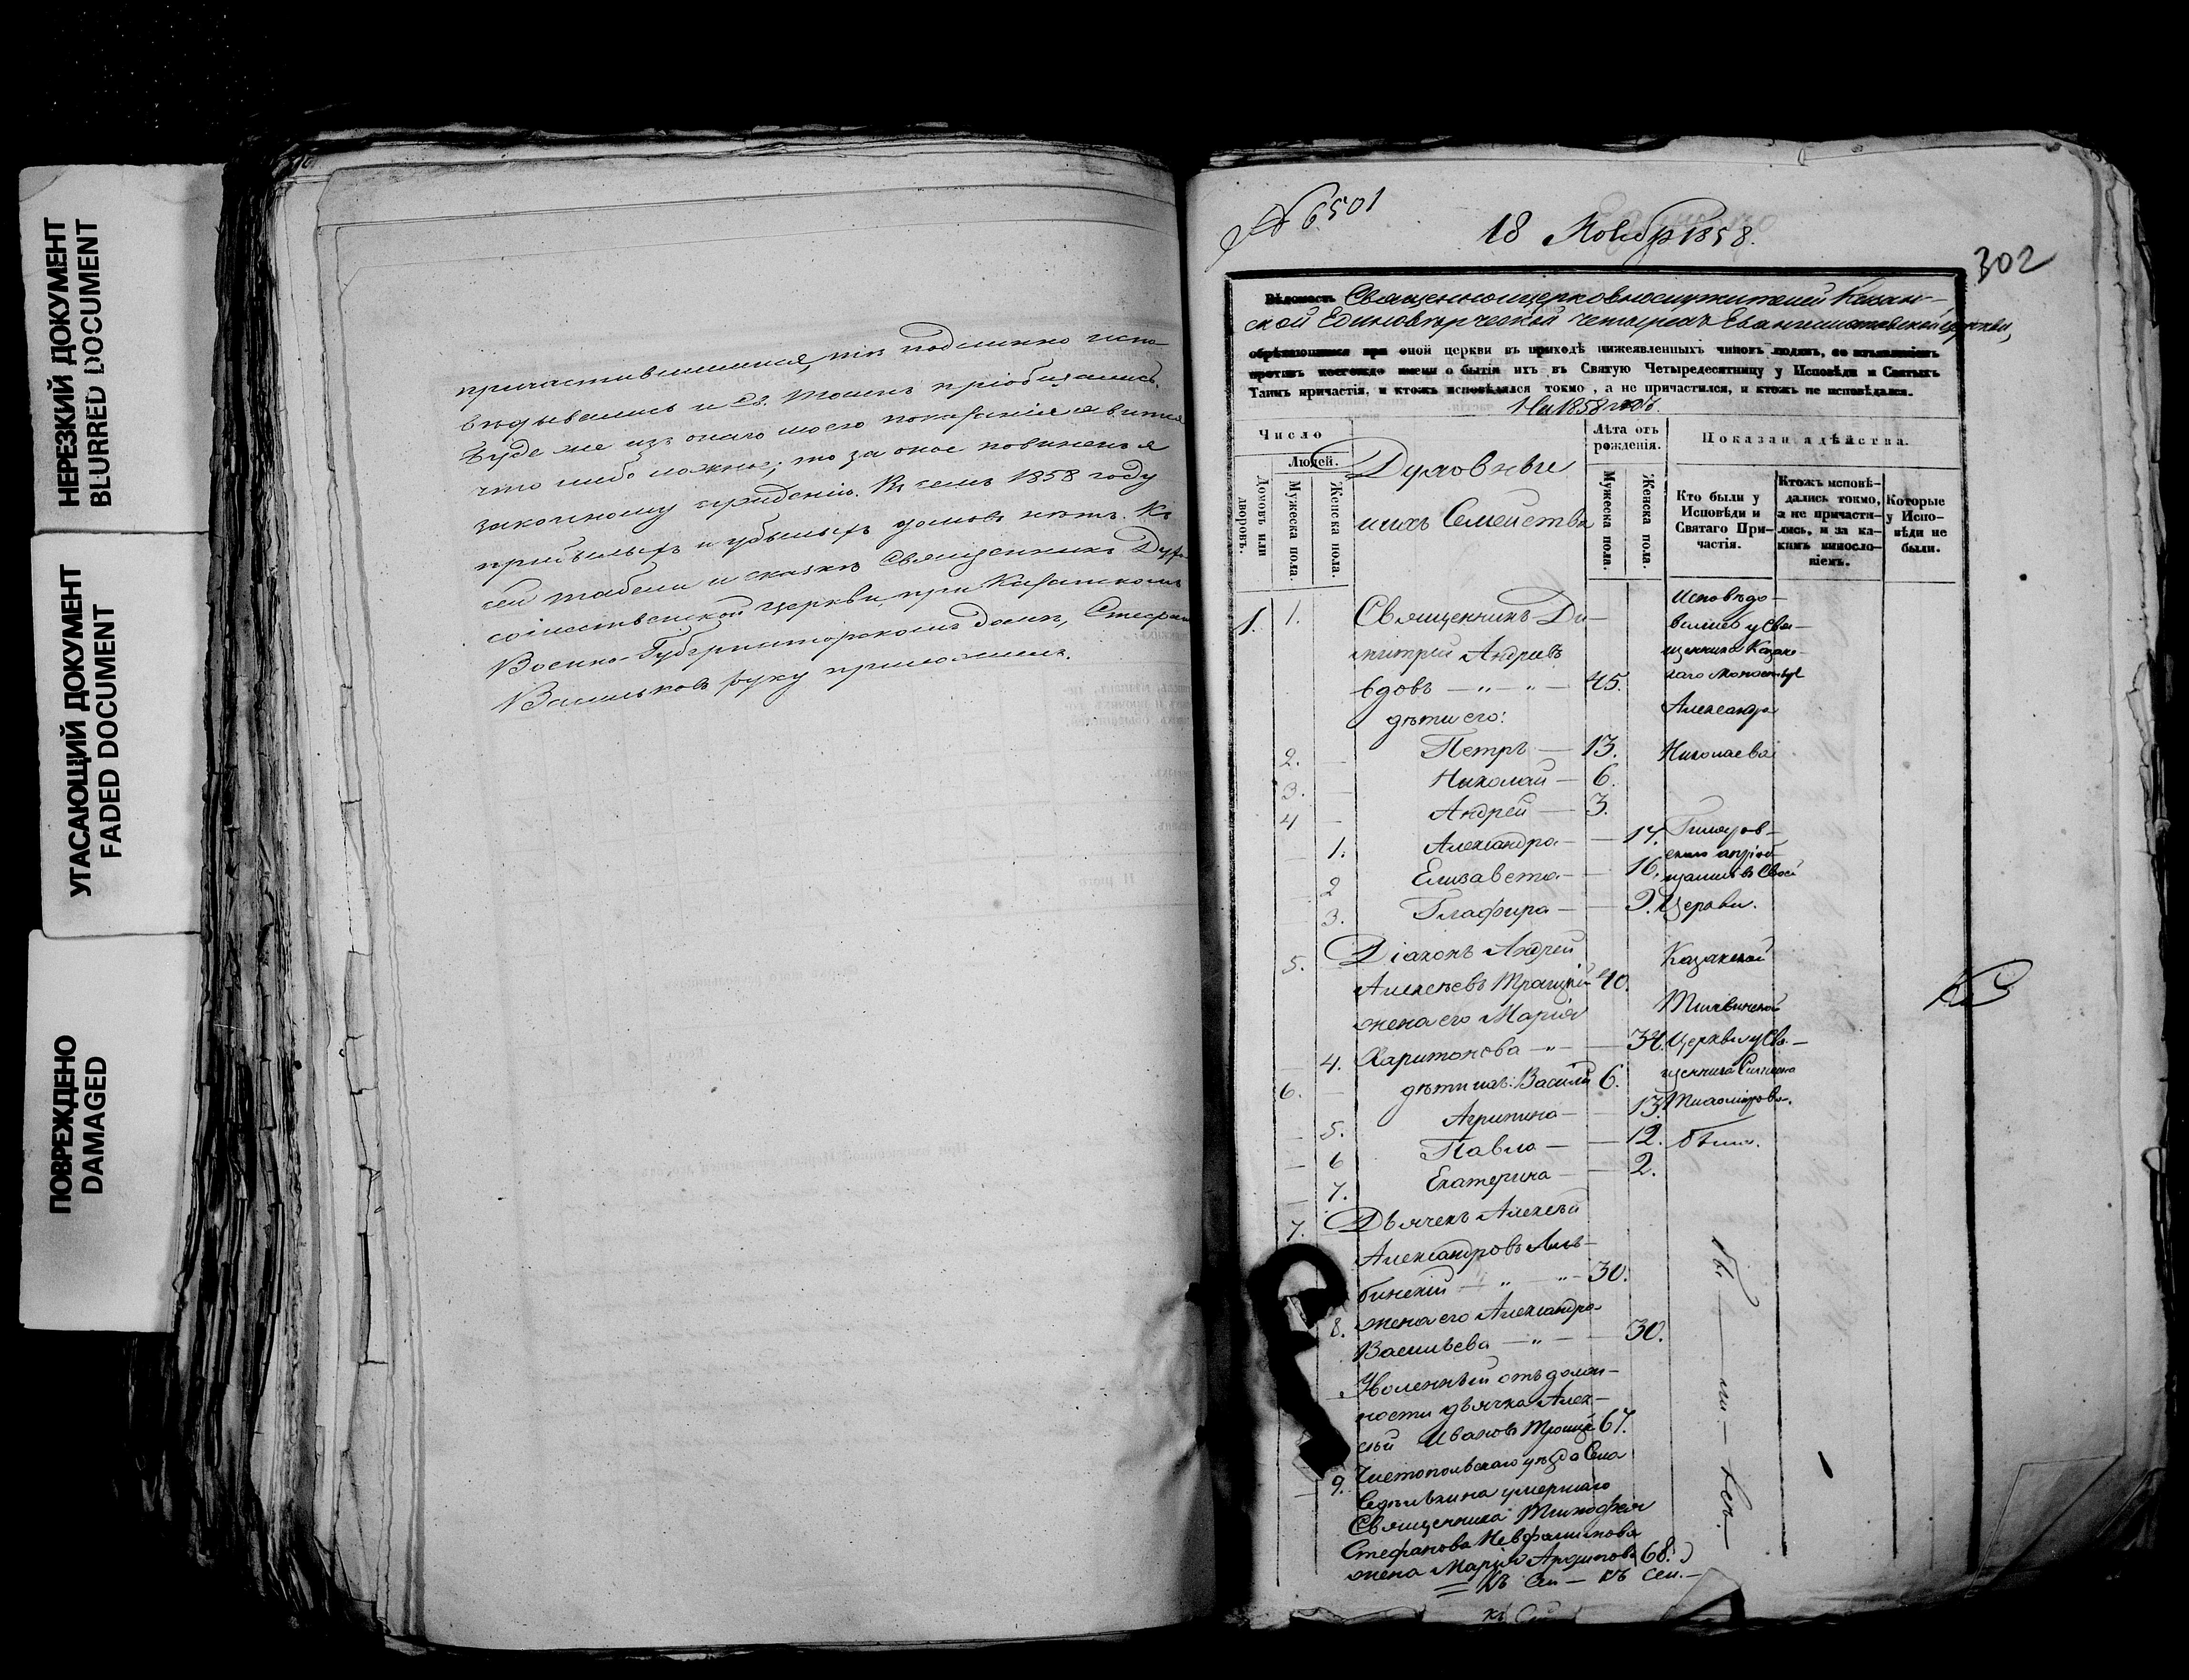 НЕРЕЗКИЙ ДОКУМЕНТ
BLURRED DOCUMENT
УГАСАЮЩИЙ ДОКУМЕНТ
FADED DOCUMENT
ПОВРЕЖДЕНО
DAMAGED
причастившимися, тѣ подлинно испо-
вѣдывались и Св. Таинъ пріобщались.
Буде же изъ онаго моего показанія явится
что либо ложное; то за оное повиненъ я
законному сужденію. Въ семъ 1858 году
прибылыхъ и убылыхъ домовъ нѣтъ. Къ
сей табели и сказкѣ Священникъ Духо-
сошественской церкви, при Казанскомъ
Военно-Губернаторскомъ домѣ, Стефанъ
Васильковъ руку приложилъ.
№ 6501
18 Ноябр 1858.
302
Вѣдомость Священноцерковнослужителей Казан-
ской Единовѣрческой четырехъ Евангелистовской церкви,
обрѣтающимся при оной церкви въ приходѣ нижеявленныхъ чиновъ людямъ, со изъявленіемъ
противъ коегождо имени о бытіи ихъ въ Святую Четыредесятницу у Исповѣди и Святыхъ
Таинъ причастія, и ктожъ исповѣдался токмо, а не причастился, и ктожъ не исповѣдался.
На 1858 годъ.
Число
Людей.
Домовъ или дворовъ.
Мужеска пола.
Женска пола.
Духовные
и ихъ Семейства
Лѣта отъ рожденія.
Мужеска пола.
Женска пола.
Показан а дѣйства.
Кто были у Исповѣди и Святаго При-частія.
Ктожъ исповѣ-дались токмо, а не причасти-лись, и за ка-кимъ винословіемъ.
Которые у Испо-вѣди не были.
1. 1. Священникъ Ди- Исповѣдо-
митрій Андреевъ вались у Свя-
щенника Казанс-
вдовъ — „ — „ — 45. каго Монастыр
дѣти его: Александра
2. Петръ — 13. Николаева
3. Николай — 6.
4 Андрей — 3.
1. Александра — 17.
2 Елизавета — 16. щались въ Своей
3. Глафира — 9. Церкви.
5. Діаконъ Андрей Казанской
Алексѣевъ Троицкій 40.
жена его Марія Тихвинской
4. Харитонова — „ — 34. Церкви у Свя-
6. дѣти ихъ: Василій 6. щенника
5. Агрипина — 13. Тихомирова.
6 Павла — 12. были.
7. Екатерина — 2.
7. Дьячекъ Алексѣй
Александровъ Аль-
бинскій — „ — „ — 30.
8. жена его Александра
Васильева — „ — 30.
Уволенный отъ долж-
ности дьячка Алек-
сѣй Ивановъ Троицкій 67.
9. Чистопольскаго уѣзда Села
умершаго
Священника Тимофея
Стефанова
жена Марія 68.